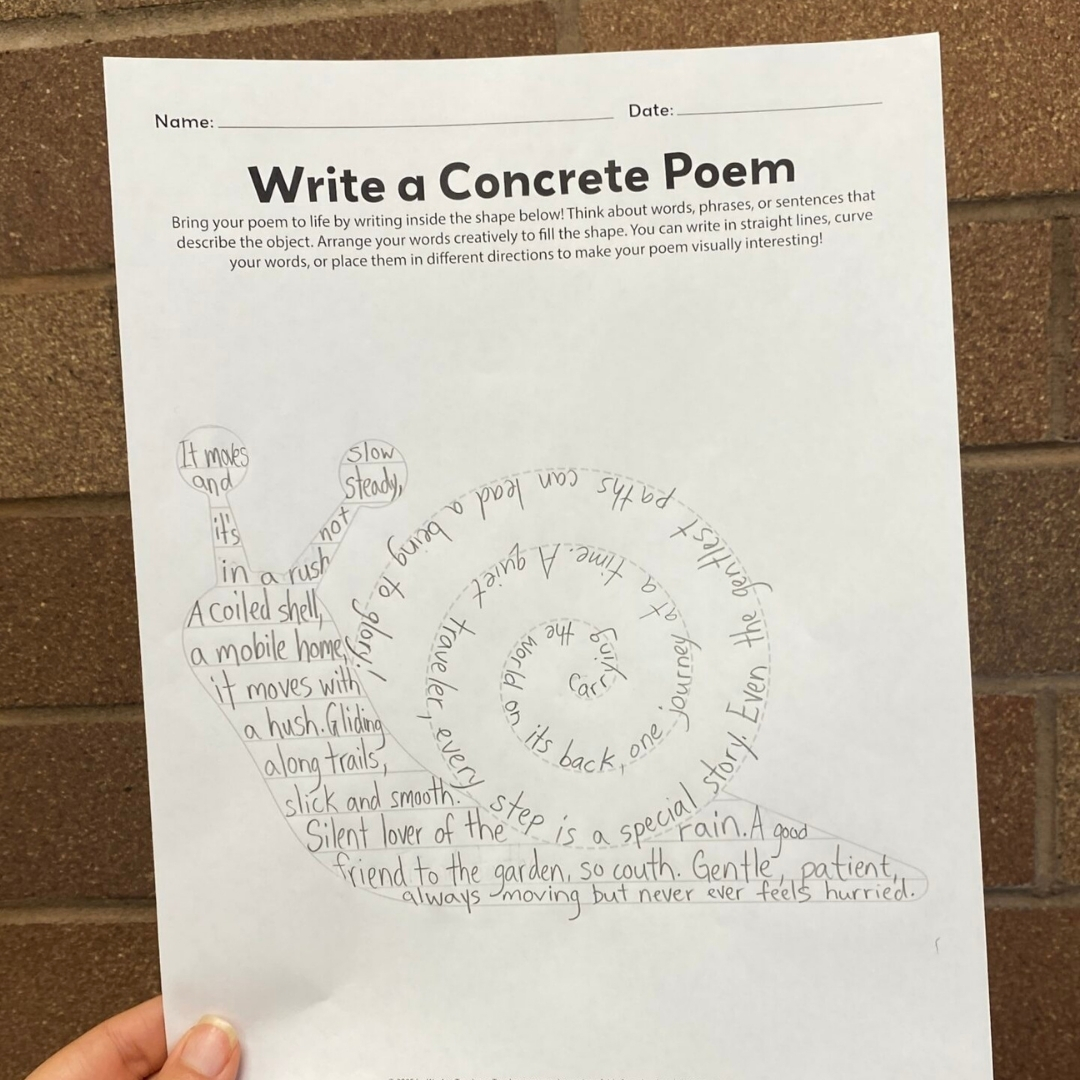 Name:
Date:
Write a Concrete Poem
Bring your poem to life by writing inside the shape below! Think about words, phrases, or sentences that
describe the object. Arrange your words creatively to fill the shape. You can write in straight lines, curve
your words, or place them in different directions to make your poem visually interesting!
It moves
and
it's
in a rush
slow
steady,
not
A coiled shell,
a mobile home,
it moves with
a hush. Gliding
along trails,
slick and smooth.
Silent lover of the rain. A good
friend to the garden, so couth. Gentle, patient,
always moving but never ever feels hurried.
Carrying the world on its back, one journey at a time. A quiet traveler, every step is a special story. Even the gentlest paths can lead a being to glory!